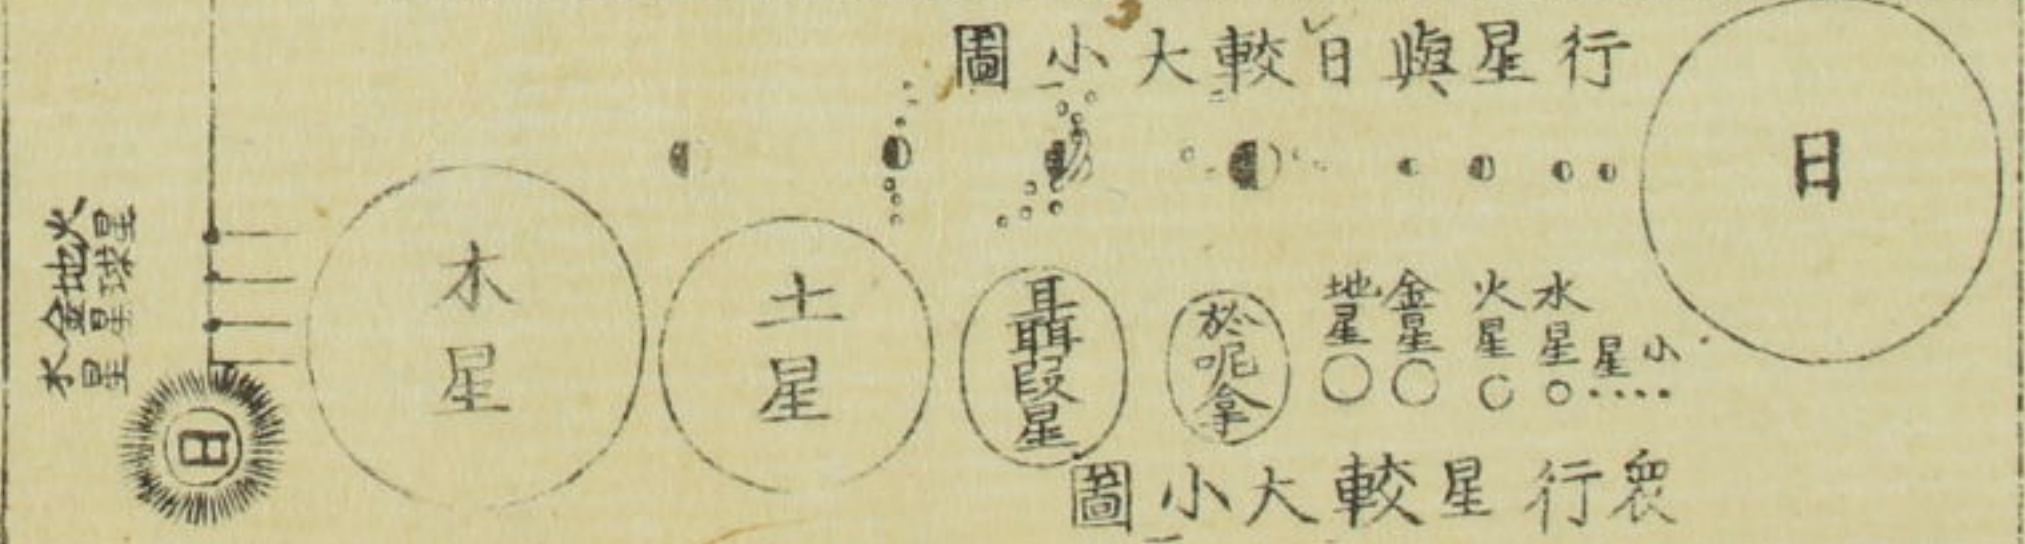 行星與日較大小圖
日
小星
水星
火星
金星
地星
於呢拿
聶段星
土星
木星
眾行星較大小圖
火星
地球
金星
水星
日